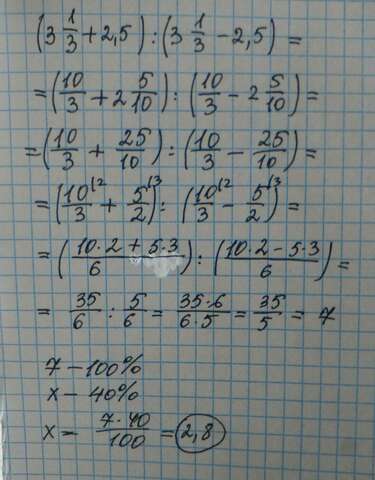 (3 1/3 + 2,5) : (3 1/3 - 2,5) =
= (10/3 + 2 5/10) : (10/3 - 2 5/10) =
= (10/3 + 25/10) : (10/3 - 25/10) =
= (10/3 (2 + 5/2 (3) : (10/3 (2 - 5/2 (3) =
= (10·2 + 5·3 / 6) : (10·2 - 5·3 / 6) =
= 35/6 : 5/6 = 35·6/6·5 = 35/5 = 7
7 - 100%
x - 40%
x - 7·40/100 = 2,8